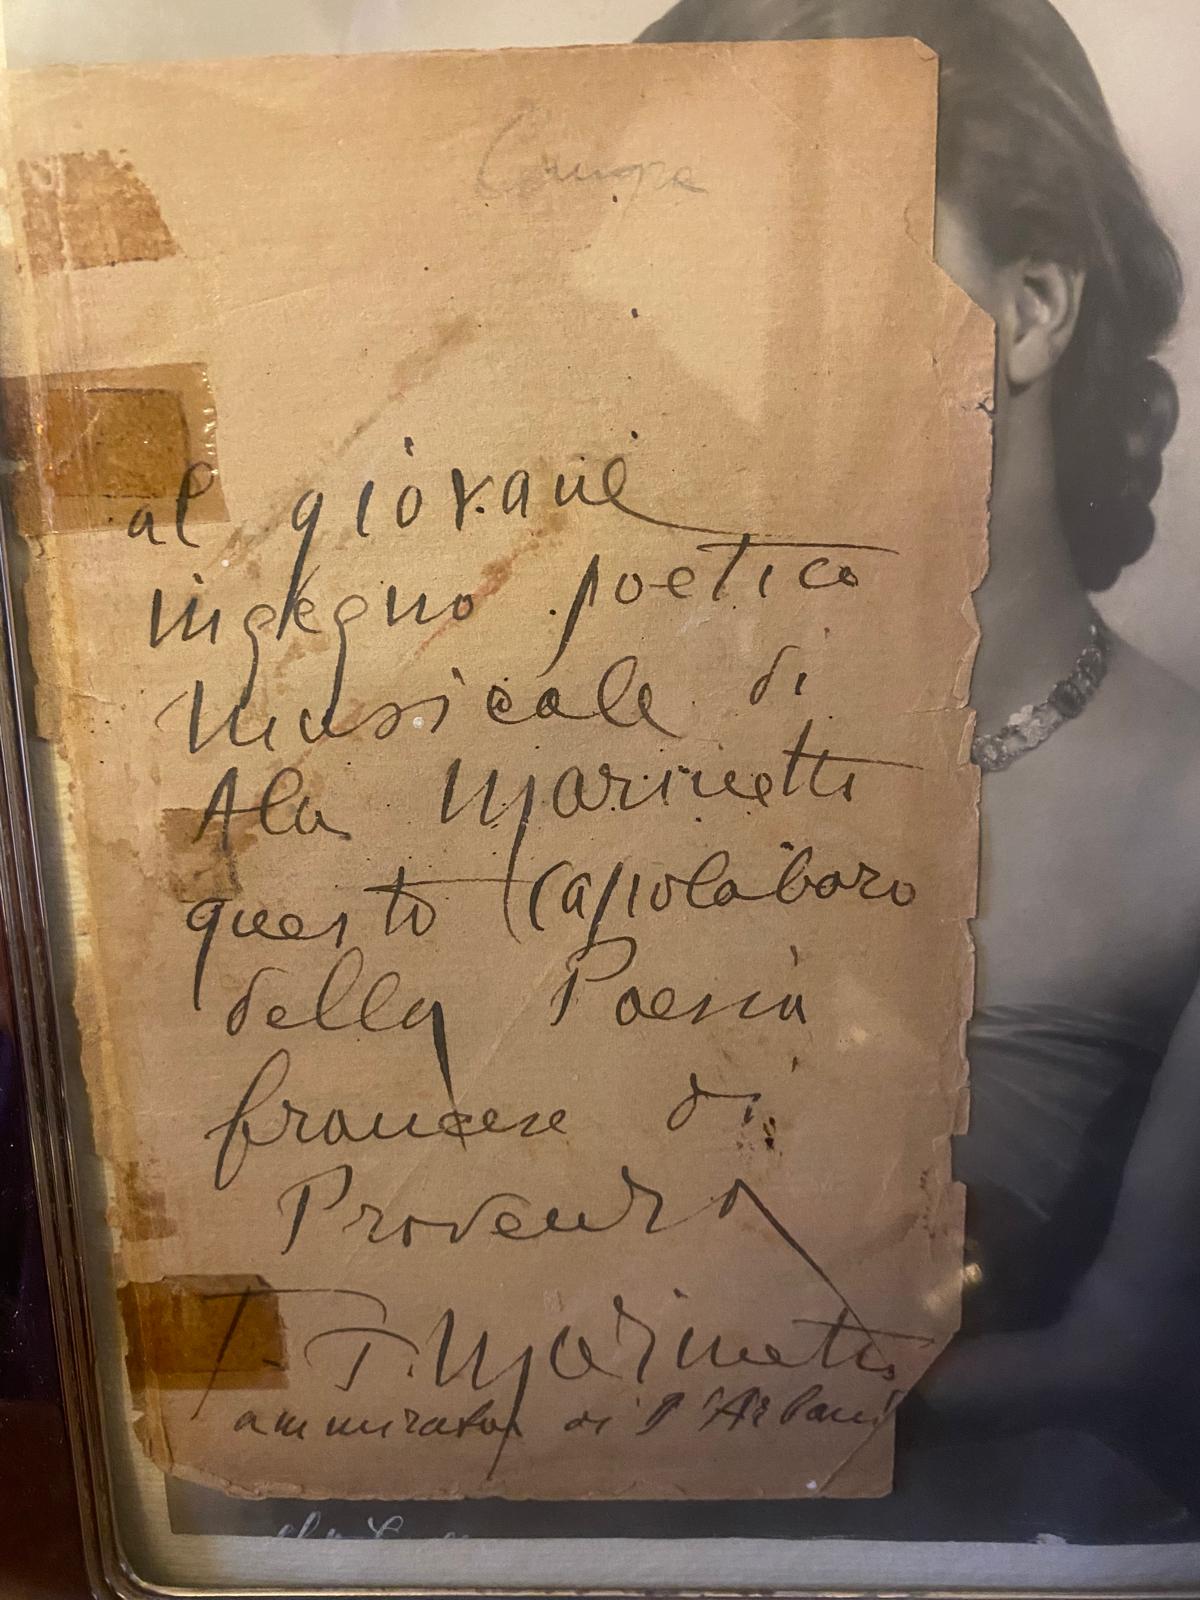 al giovane
ingegno poetico
musicale di
Ala Marinetti
questo capolavoro
della Poesia
francese di
Provenza
F. T. Marinetti
ammirator di d'Arbaud